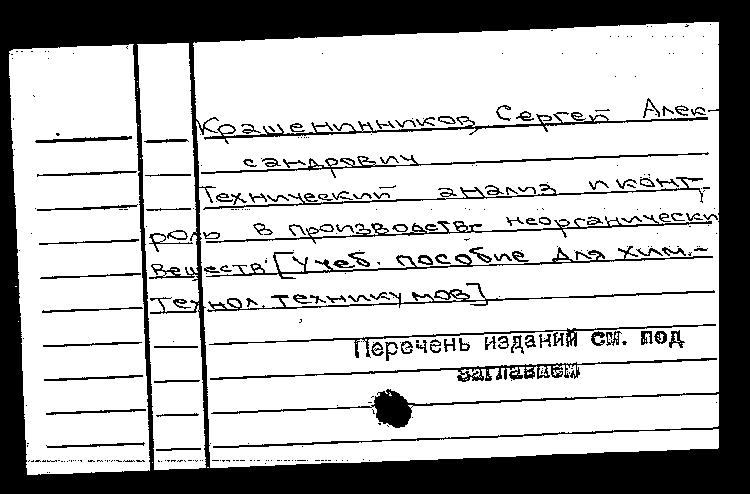 Крашенинников, Сергей Алек-
сандрович
Технический анализ и конт-
роль в производстве неорганически
веществ [Учеб. пособие для хим.-
технол. техникумов].
Перечень изданий см. под
заглавием